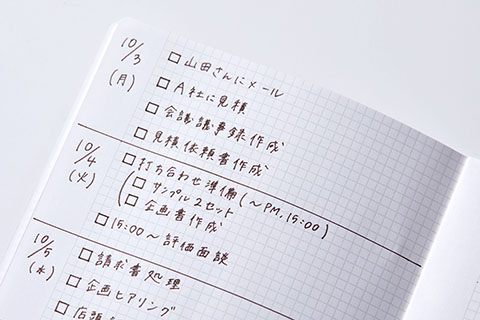 10/3
(月)
□山田さんにメール
□A社に見積
□会議議事録作成
□見積依頼書作成
10/4
(火)
□打ち合わせ準備(〜PM.15:00)
□サンプル2セット
□企画書作成
□15:00〜評価面談
10/5
(水)
□請求書処理
□企画ヒアリング
□店張